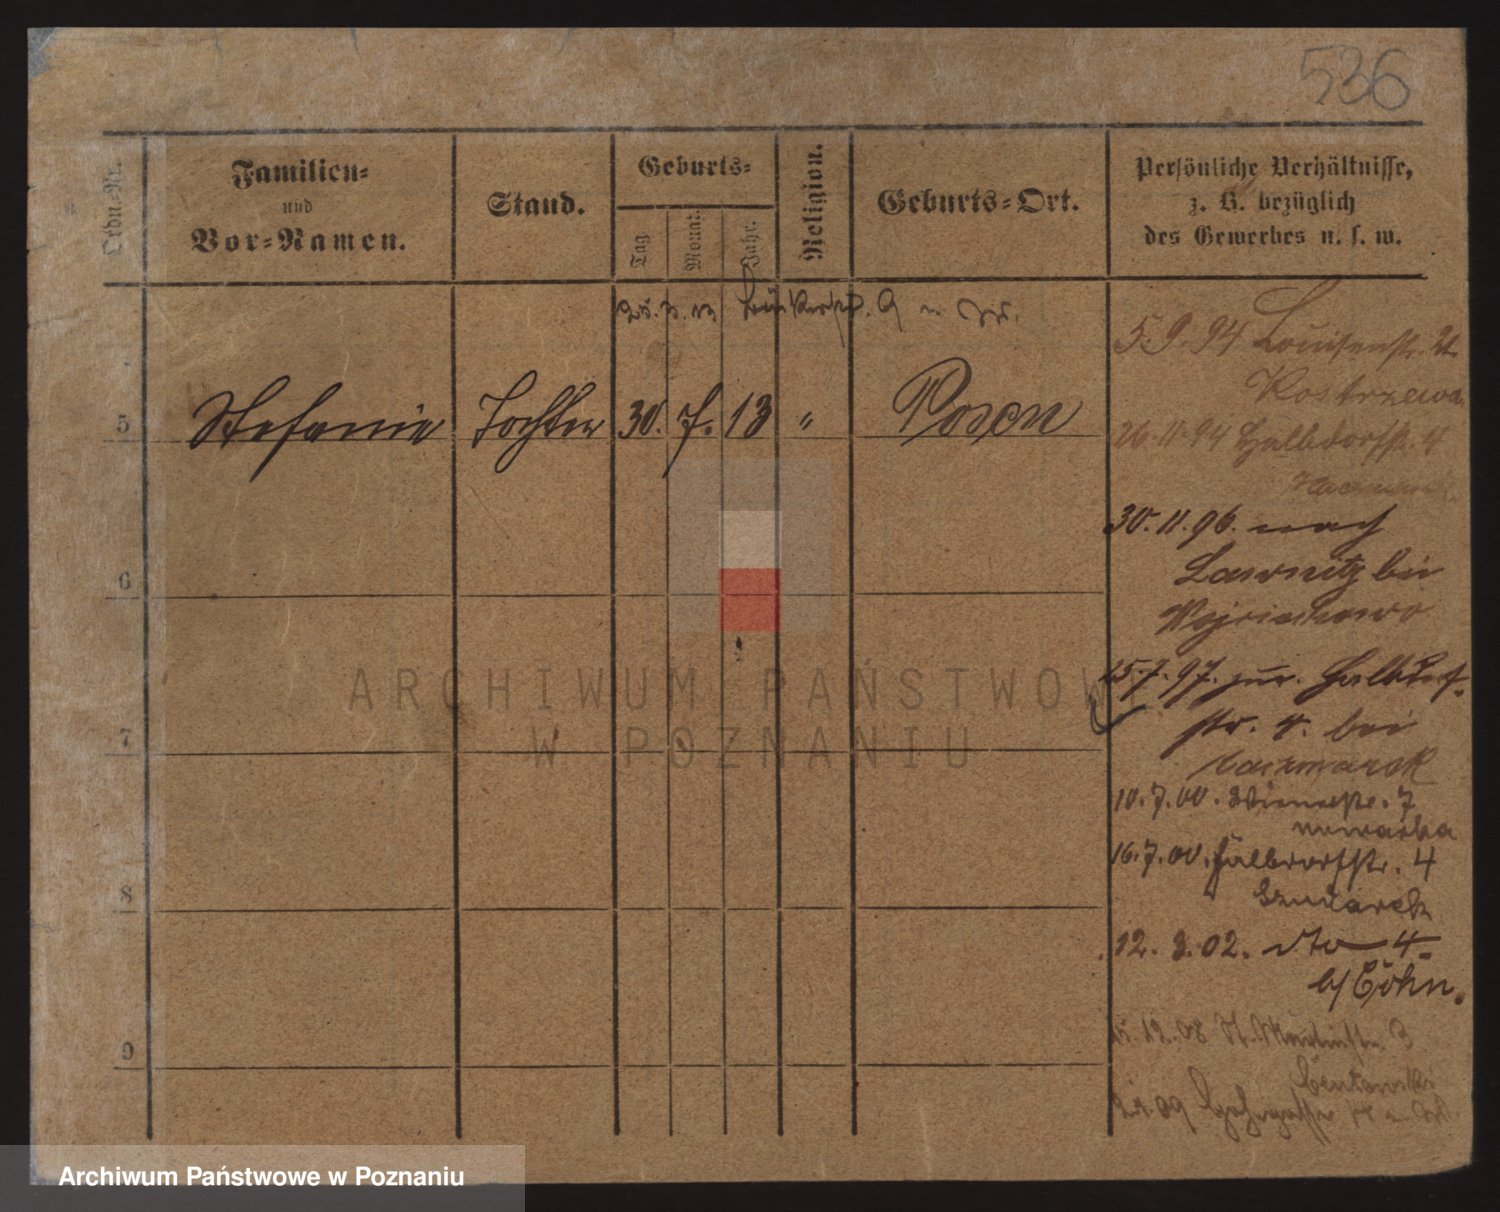 536
Ordn.-Nr.
Familien-
und
Vor-Namen.
Stand.
Geburts-
Tag.
Monat.
Jahr.
Religion.
Geburts-Ort.
Persönliche Verhältnisse,
z. B. bezüglich
des Gewerbes u. s. w.
5.9.94 Louisenstr.
Kostrzewa
5 Stefanie Tochter 30. 7. 13 " Posen
26.11.94 Halbdorfstr. 4
30.11.96. nach
Lawnitz bei
6
15.7.97. zur. Halbdorf-
str. 4. bei
7
Kaczmarek
10.7.00. Wienerstr. 7
16.7.00. Halbdorfstr. 4
8
12. 3. 02. dto 4.
b/ Cohn.
08 St. Martinstr. 3
9
09
ARCHIWUM PAŃSTWOWE
W POZNANIU
Archiwum Państwowe w Poznaniu